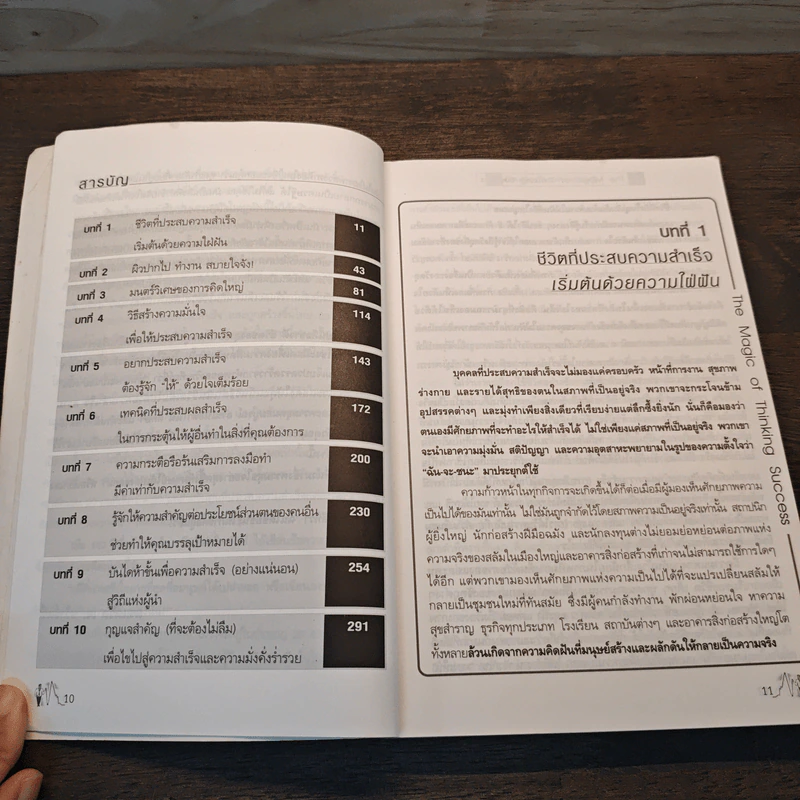 สารบัญ
บทที่ 1 ชีวิตที่ประสบความสำเร็จ 11
เริ่มต้นด้วยความใฝ่ฝัน
บทที่ 2 ผิวปากไป ทำงาน สบายใจจัง! 43
บทที่ 3 มนตร์วิเศษของการคิดใหญ่ 81
บทที่ 4 วิธีสร้างความมั่นใจ 114
เพื่อให้ประสบความสำเร็จ
บทที่ 5 อยากประสบความสำเร็จ 143
ต้องรู้จัก "ให้" ด้วยใจเต็มร้อย
บทที่ 6 เทคนิคที่ประสบผลสำเร็จ 172
ในการกระตุ้นให้ผู้อื่นทำในสิ่งที่คุณต้องการ
บทที่ 7 ความกระตือรือร้นเสริมการลงมือทำ 200
มีค่าเท่ากับความสำเร็จ
บทที่ 8 รู้จักให้ความสำคัญต่อประโยชน์ส่วนตนของคนอื่น 230
ช่วยทำให้คุณบรรลุเป้าหมายได้
บทที่ 9 บันไดห้าขั้นเพื่อความสำเร็จ (อย่างแน่นอน) 254
สู่วิถีแห่งผู้นำ
บทที่ 10 กุญแจสำคัญ (ที่จะต้องไม่ลืม) 291
เพื่อไขไปสู่ความสำเร็จและความมั่งคั่งร่ำรวย
10
บทที่ 1
ชีวิตที่ประสบความสำเร็จ
เริ่มต้นด้วยความใฝ่ฝัน
The Magic of Thinking Success
บุคคลที่ประสบความสำเร็จจะไม่มองแค่ครอบครัว หน้าที่การงาน สุขภาพ
ร่างกาย และรายได้สุทธิของตนในสภาพที่เป็นอยู่จริง พวกเขาจะกระโจนข้าม
อุปสรรคต่างๆ และมุ่งทำเพียงสิ่งเดียวที่เรียบง่ายแต่ลึกซึ้งยิ่งนัก นั่นก็คือมองว่า
ตนเองมีศักยภาพที่จะทำอะไรให้สำเร็จได้ ไม่ใช่เพียงแค่สภาพที่เป็นอยู่จริง พวกเขา
จะนำเอาความมุ่งมั่น สติปัญญา และความอุตสาหะพยายามในรูปของความตั้งใจว่า
"ฉัน-จะ-ชนะ" มาประยุกต์ใช้
ความก้าวหน้าในทุกกิจการจะเกิดขึ้นได้ก็ต่อเมื่อมีผู้มองเห็นศักยภาพความ
เป็นไปได้ของมันเท่านั้น ไม่ใช่มันถูกจำกัดไว้โดยสภาพความเป็นอยู่จริงเท่านั้น สถาปนิก
ผู้ยิ่งใหญ่ นักก่อสร้างฝีมือฉมัง และนักลงทุนต่างไม่ยอมย่อหย่อนต่อสภาพแห่ง
ความจริงของสลัมในเมืองใหญ่และอาคารสิ่งก่อสร้างที่เก่าจนไม่สามารถใช้การใดๆ
ได้อีก แต่พวกเขามองเห็นศักยภาพแห่งความเป็นไปได้ที่จะแปรเปลี่ยนสลัมให้
กลายเป็นชุมชนใหม่ที่ทันสมัย ซึ่งมีผู้คนกำลังทำงาน พักผ่อนหย่อนใจ หาความ
สุขสำราญ ธุรกิจทุกประเภท โรงเรียน สถาบันต่างๆ และอาคารสิ่งก่อสร้างใหญ่โต
ทั้งหลายล้วนเกิดจากความคิดฝันที่มนุษย์สร้างและผลักดันให้กลายเป็นความจริง
11